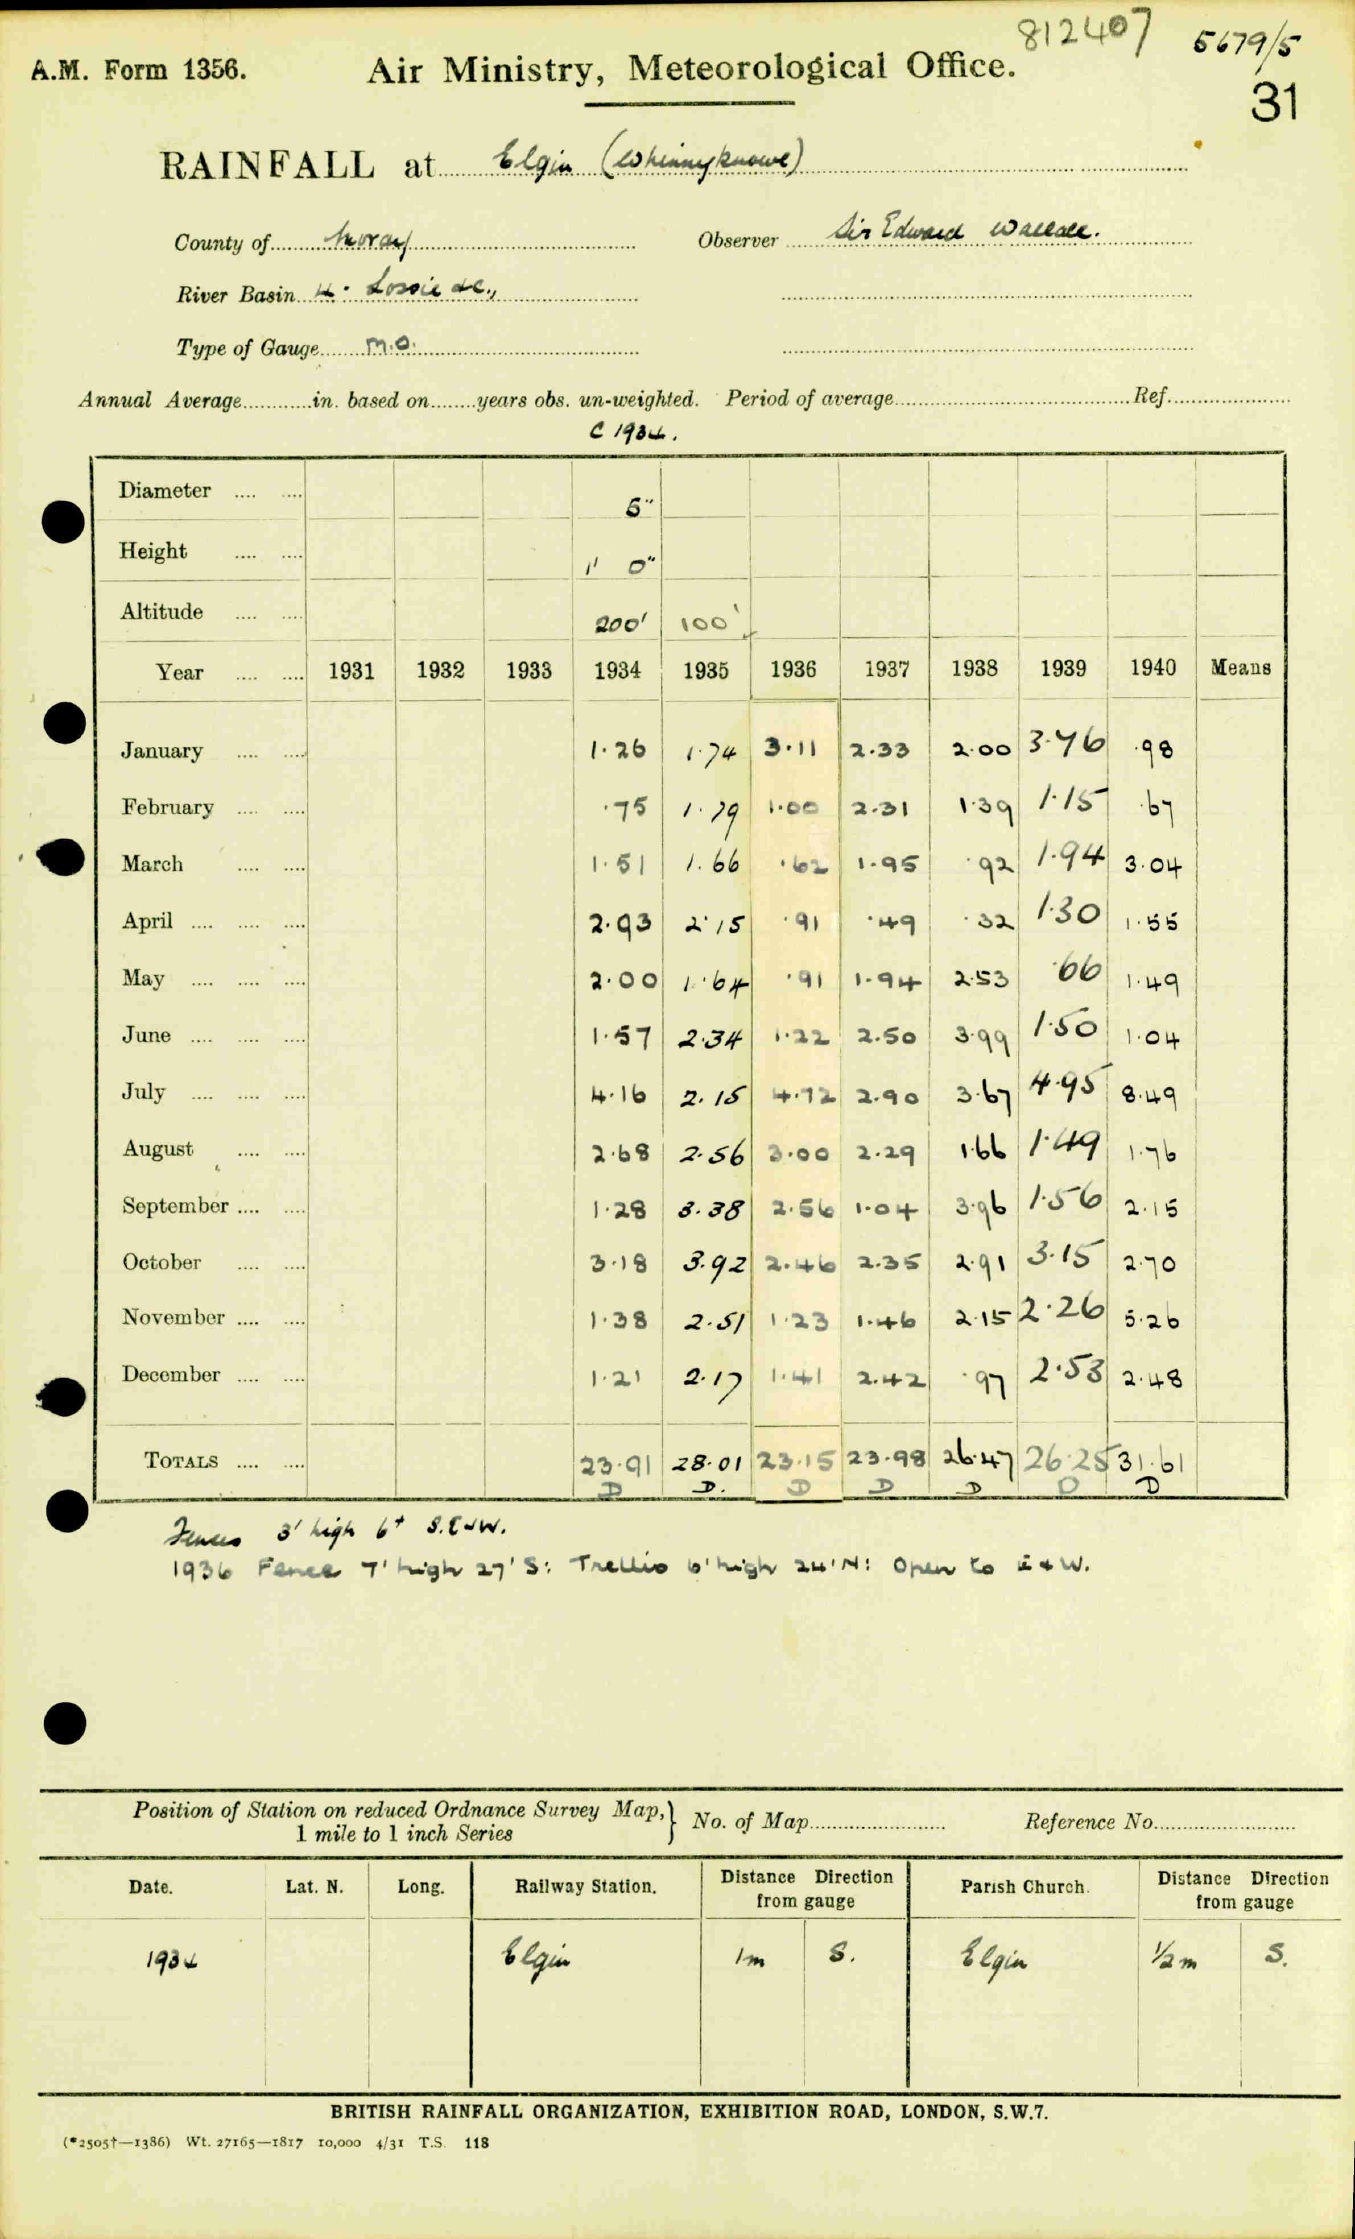 812407 5679/5
A.M. Form 1356. Air Ministry, Meteorological Office. 31
RAINFALL at Elgin (Whinnyknowe)
County of Moray Observer Sir Edward Wallace.
River Basin 4. Lossie &c.,
Type of Gauge M.O.
Annual Average in. based on years obs. un-weighted. Period of average Ref
C 1934.
Diameter 5"
Height 1' 0"
Altitude 200' 100'
Year 1931 1932 1933 1934 1935 1936 1937 1938 1939 1940 Means
January 1.26 1.74 3.11 2.33 2.00 3.76 .98
February .75 1.79 1.00 2.31 1.39 1.15 .67
March 1.51 1.66 .62 1.95 .92 1.94 3.04
April 2.93 2.15 .91 .49 .32 1.30 1.55
May 2.00 1.64 .91 1.94 2.53 .66 1.49
June 1.57 2.34 1.22 2.50 3.99 1.50 1.04
July 4.16 2.15 4.72 2.90 3.67 4.95 8.49
August 2.68 2.56 3.00 2.29 1.66 1.49 1.76
September 1.28 3.38 2.56 1.04 3.96 1.56 2.15
October 3.18 3.92 2.46 2.35 2.91 3.15 2.70
November 1.38 2.51 1.23 1.46 2.15 2.26 5.26
December 1.21 2.17 1.41 2.42 .97 2.53 2.48
TOTALS 23.91 28.01 23.15 23.98 26.47 26.25 31.61
D D. D D D D D
Fences 3' high 6' S.E&W.
1936 Fence 7' high 27' S: Trellis 6' high 24' N: Open to E & W.
Position of Station on reduced Ordnance Survey Map, } No. of Map Reference No
1 mile to 1 inch Series
Date. Lat. N. Long. Railway Station. Distance Direction from gauge Parish Church. Distance Direction from gauge
1934 Elgin 1m S. Elgin 1/2 m S.
BRITISH RAINFALL ORGANIZATION, EXHIBITION ROAD, LONDON, S.W.7.
(*2505†—1386) Wt. 27165—1817 10,000 4/31 T.S. 118